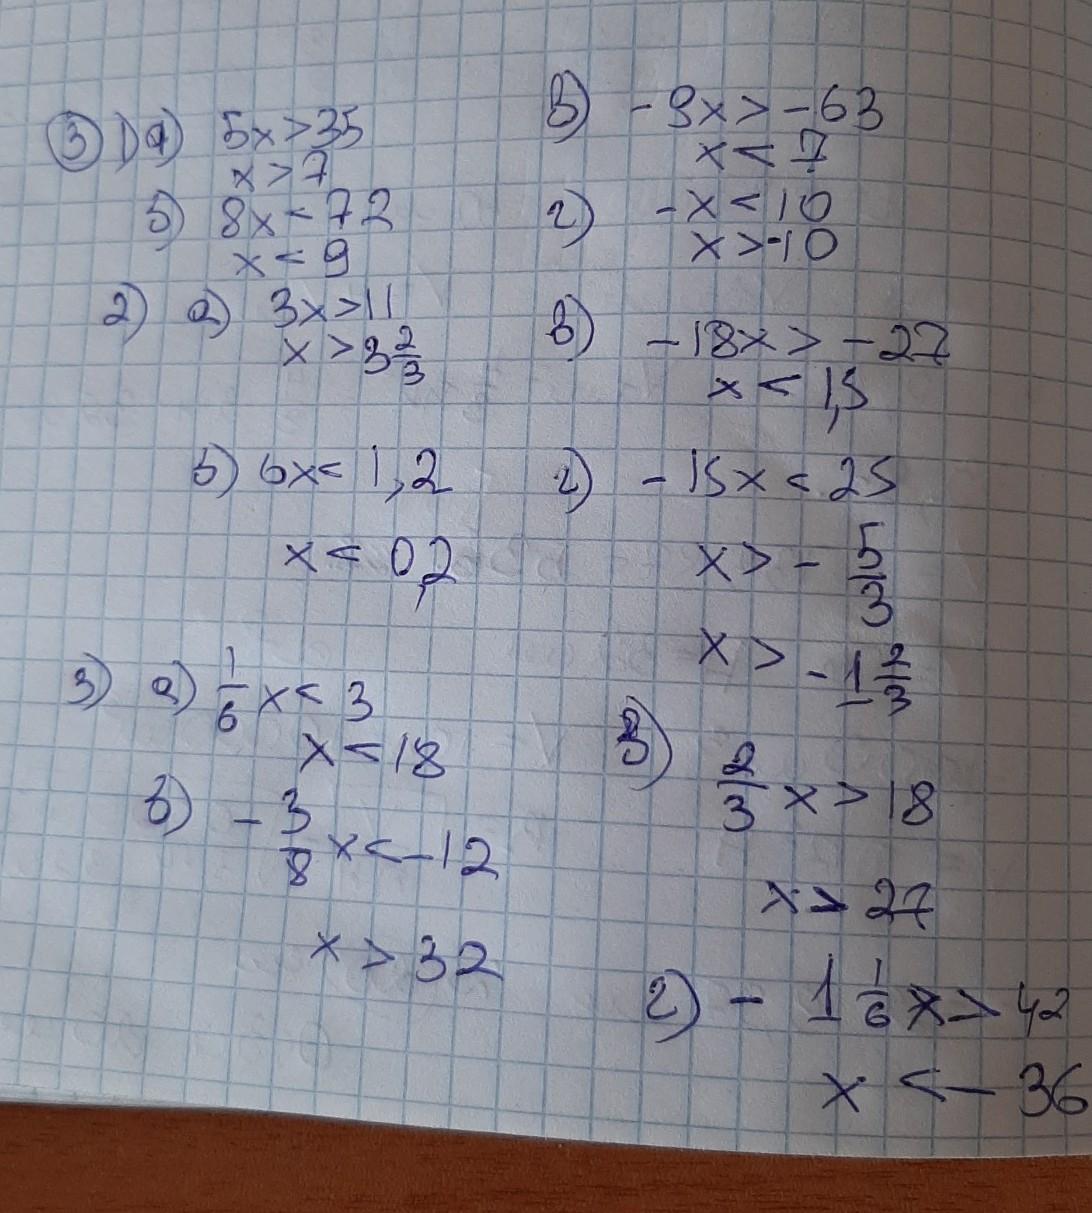 ③ 1) а) 5x > 35
x > 7
б) 8x < 72
x < 9
в) -9x > -63
x < 7
г) -x < 10
x > -10
2) а) 3x > 11
x > 3 2/3
б) 6x < 1,2
x < 0,2
в) -18x > -27
x < 1,5
г) -15x < 25
x > - 5/3
x > -1 2/3
3) а) 1/6 x < 3
x < 18
б) - 3/8 x < -12
x > 32
в) 2/3 x > 18
x > 27
г) - 1 1/6 x > 42
x < -36